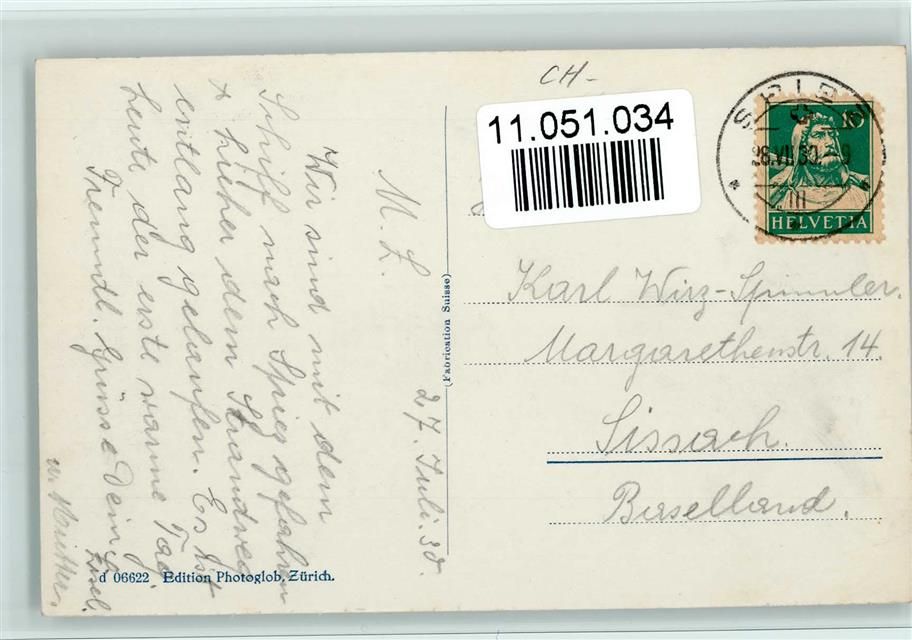 M. L.
27. Juli. 30.
Wir sind mit dem
Schiff nach Spiez gefahren
& hieher dem Strandweg
entlang gelaufen. Es ist
heute der erste warme Tag.
Freundl. Grüsse Dein
Lisel.
u. Mutter.
d 06622 Edition Photoglob, Zürich.
(Fabrication Suisse)
CH-
11.051.034
SPIEZ
28.VII.30. - 9
III
10
HELVETIA
Karl Wirz-Spinnler.
Margarethenstr. 14.
Sissach.
Baselland.